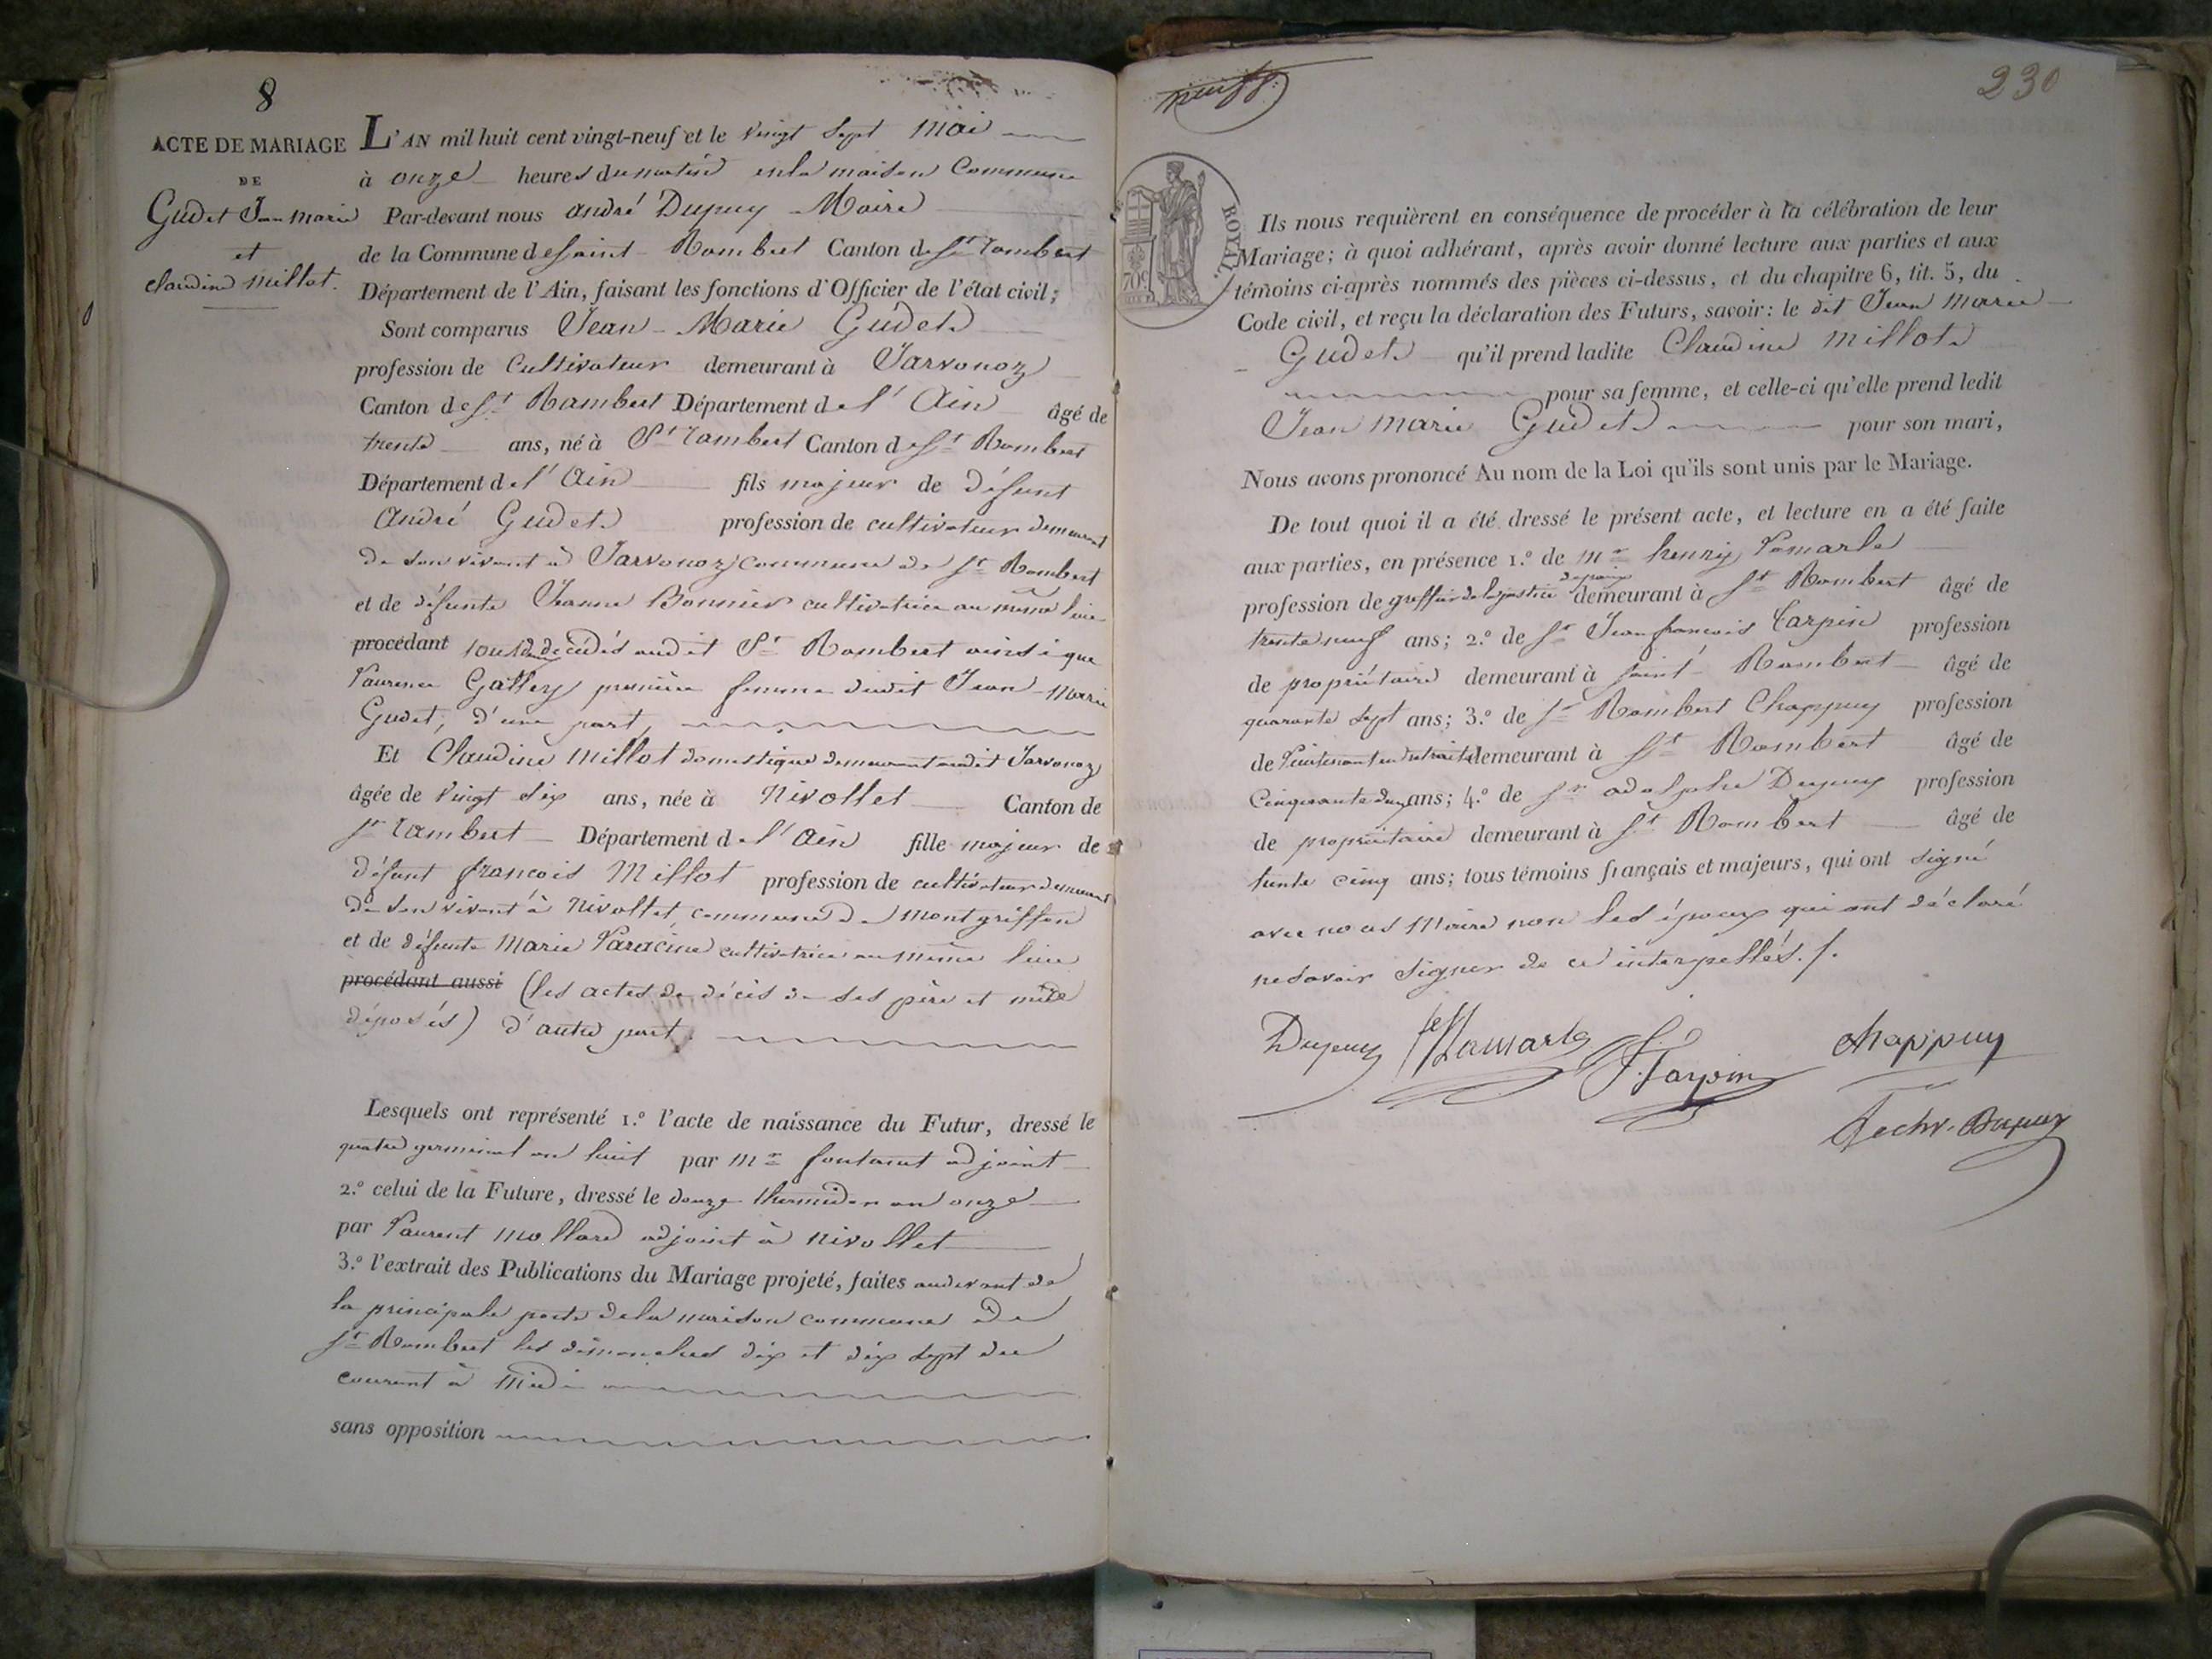 8
ACTE DE MARIAGE
DE
Gudet Jean marie
et
claudine Millot.
L'AN mil huit cent vingt-neuf et le vingt sept Mai
à onze heures du matin en la maison Commune
Par-devant nous andré Dupuy Maire
de la Commune de Saint-Rambert Canton de St Rambert
Département de l'Ain, faisant les fonctions d'Officier de l'état civil;
Sont comparus Jean-Marie Gudet
profession de Cultivateur demeurant à Javornoz
Canton de St Rambert Département de l'Ain âgé de
trente ans, né à St Rambert Canton de St Rambert
Département de l'Ain fils majeur de défunt
André Gudet profession de cultivateur demeurant
de son vivant à Javornoz commune de St Rambert
et de défunte Jeanne Bonnier cultivatrice au même lieu
procédant tous deux décédés audit St Rambert ainsi que
Laurence Galley première femme dudit Jean-Marie
Gudet, d'une part,
Et Claudine Millot domestique demeurant audit Javornoz
âgée de vingt six ans, née à Nivollet Canton de
St Rambert Département de l'Ain fille majeur de
défunt françois Millot profession de cultivateur demeurant
de son vivant à Nivollet commune de Montgriffon
et de défunte Marie Laracine cultivatrice au même lieu
procédant aussi (les actes de décès de ses père et mère
déposés) d'autre part.
Lesquels ont représenté 1.º l'acte de naissance du Futur, dressé le
quatre germinal an huit par mr fontanet adjoint
2.º celui de la Future, dressé le douze thermidor an onze
par Laurent Mollard adjoint à nivollet
3.º l'extrait des Publications du Mariage projeté, faites au devant de
la principale porte de la maison commune de
St Rambert les dimanches dix et dix sept du
courant à Midi
sans opposition
230
ROYAL.
70c
Ils nous requièrent en conséquence de procéder à la célébration de leur
Mariage; à quoi adhérant, après avoir donné lecture aux parties et aux
témoins ci-après nommés des pièces ci-dessus, et du chapitre 6, tit. 5, du
Code civil, et reçu la déclaration des Futurs, savoir: le dit Jean Marie
Gudet qu'il prend ladite Claudine Millot
pour sa femme, et celle-ci qu'elle prend ledit
Jean Marie Gudet pour son mari,
Nous avons prononcé Au nom de la Loi qu'ils sont unis par le Mariage.
De tout quoi il a été dressé le présent acte, et lecture en a été faite
aux parties, en présence 1.º de mr henry Lamarle
profession de greffier de la justice de paix demeurant à St Rambert âgé de
trente neuf ans; 2.º de Sr Jean françois Carpin profession
de propriétaire demeurant à Saint-Rambert âgé de
quarante sept ans; 3.º de Sr Rambert Chappuy profession
de Lieutenant en retraite demeurant à St Rambert âgé de
Cinquante deux ans; 4.º de Sr adolphe Dupuy profession
de propriétaire demeurant à St Rambert âgé de
trente cinq ans; tous témoins français et majeurs, qui ont signé
avec nous Maire non les époux qui ont déclaré
ne savoir signer de ce interpellés./.
Dupuy Lamarle J. Carpin chappuy
Dupuy